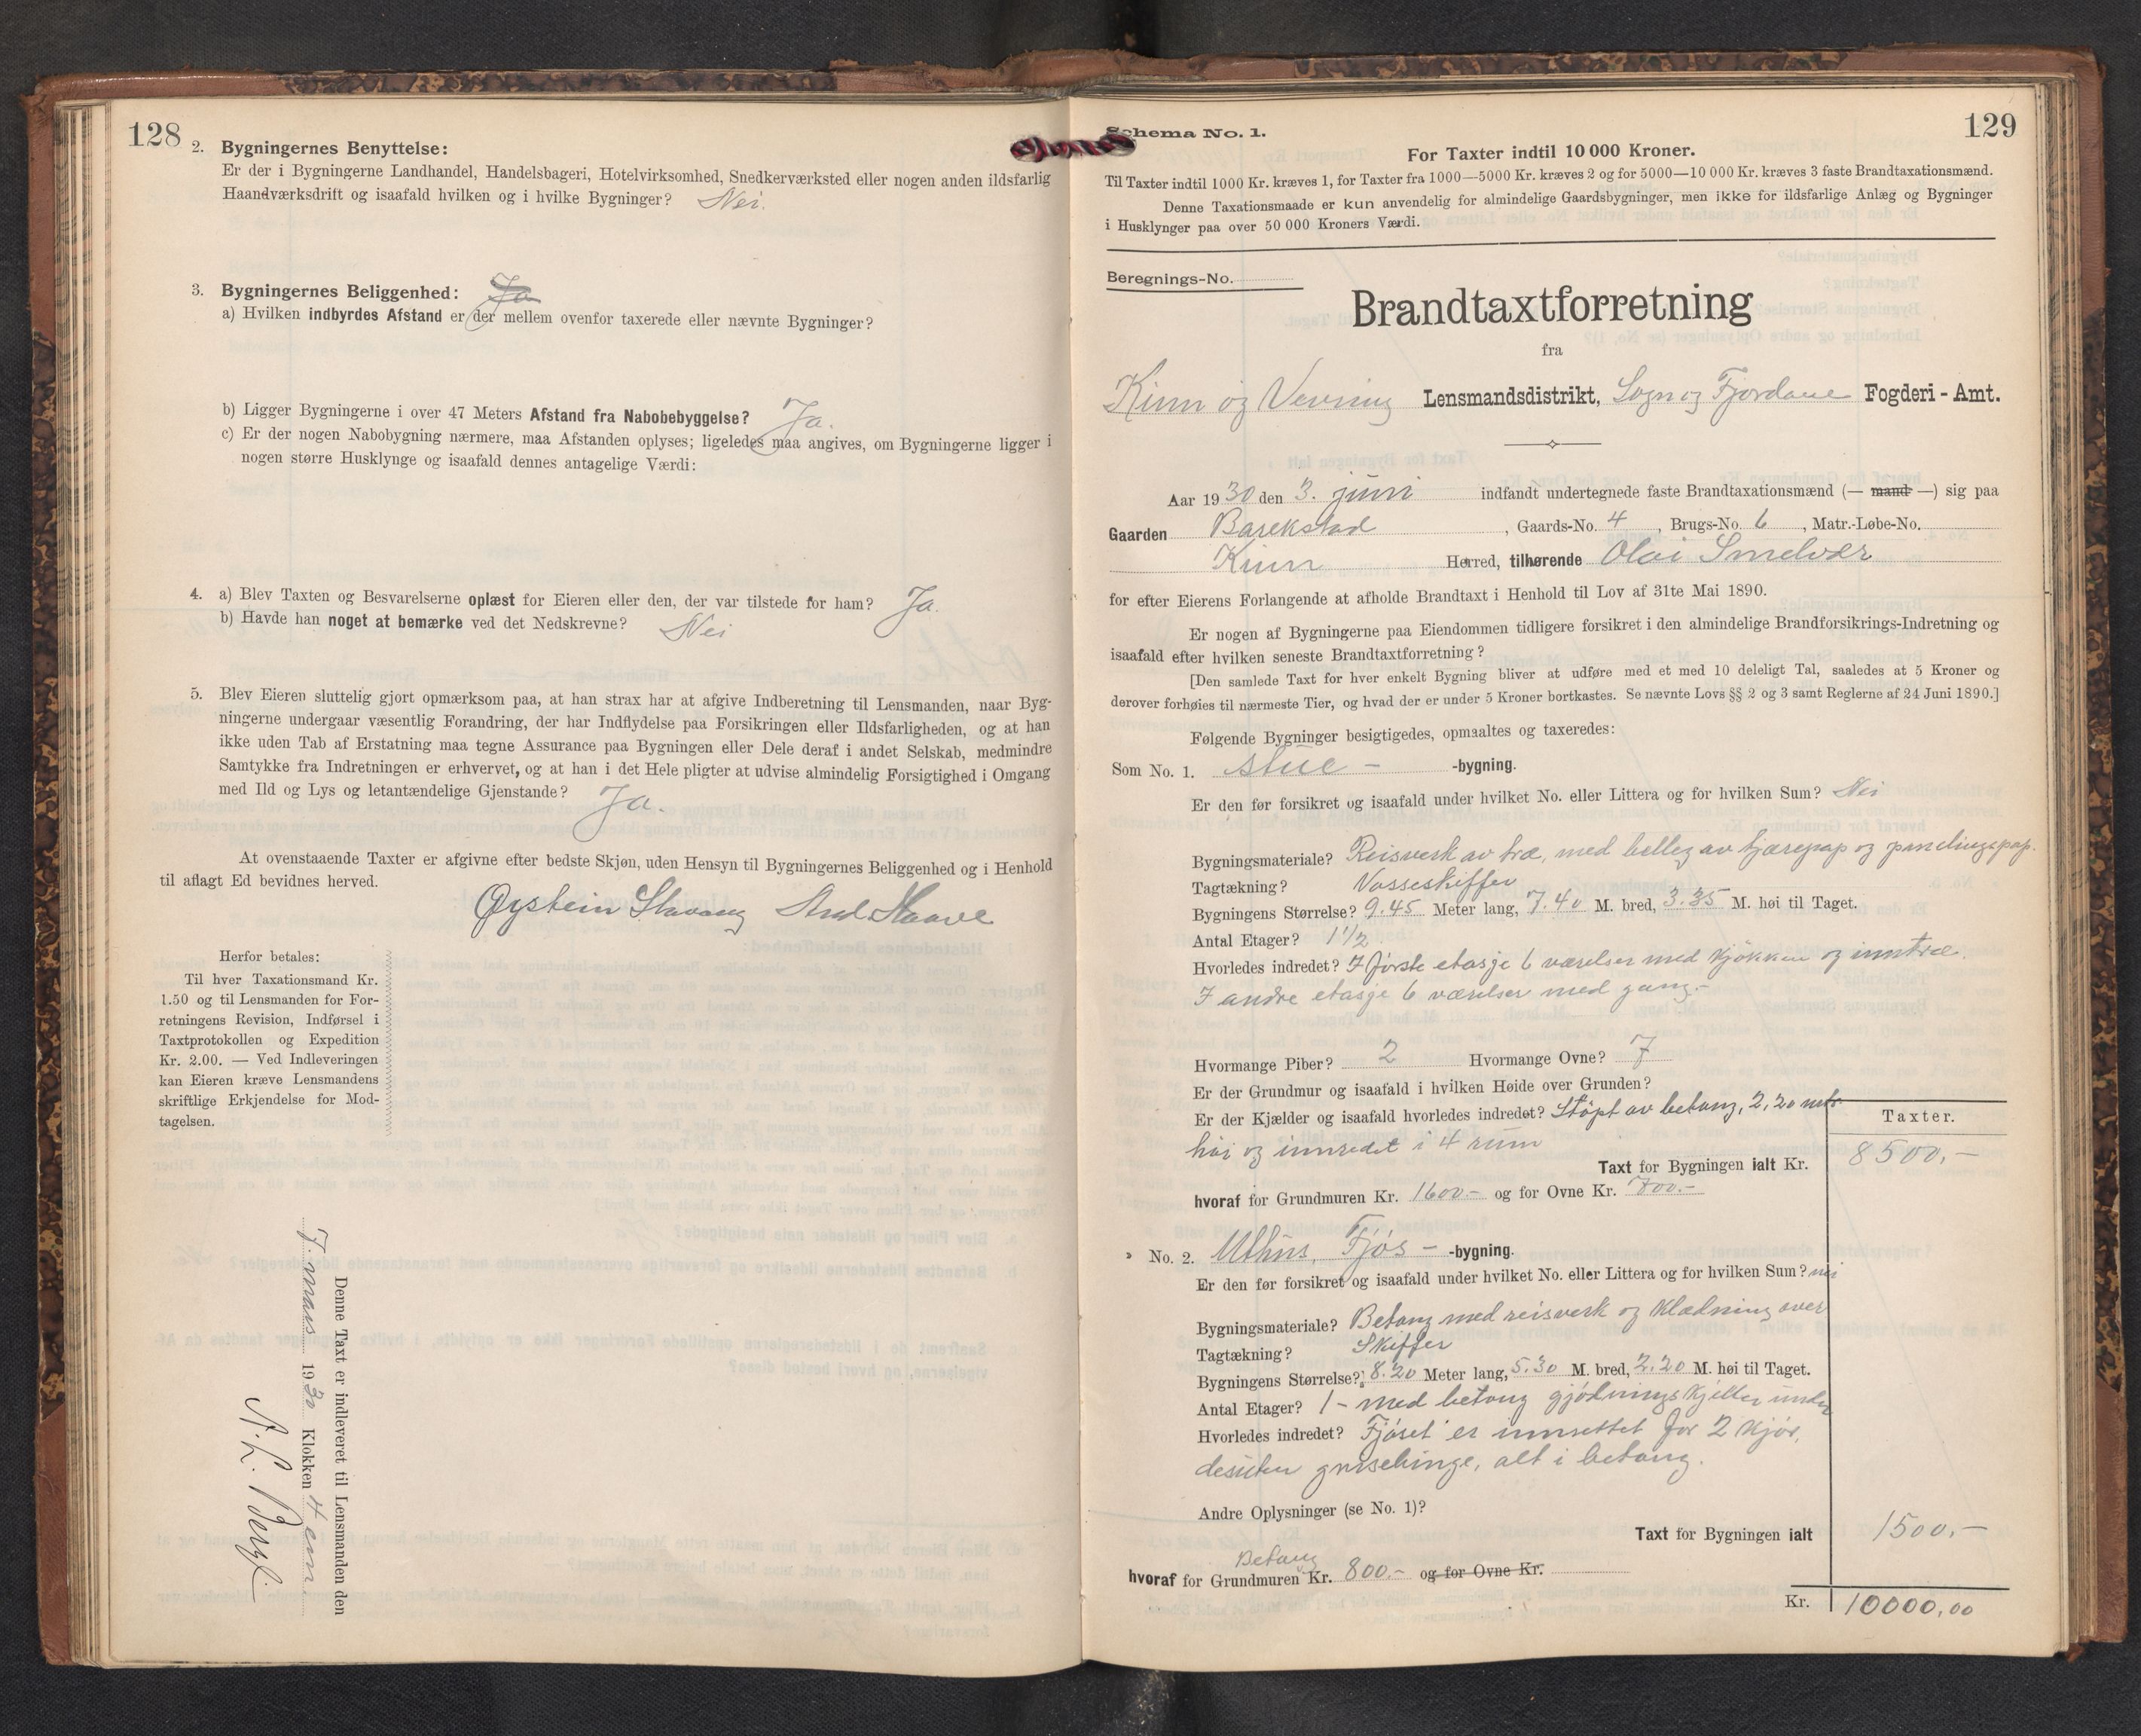 128
2. Bygningernes Benyttelse:
Er der i Bygningerne Landhandel, Handelsbageri, Hotelvirksomhed, Snedkerværksted eller nogen anden ildsfarlig
Haandværksdrift og isaafald hvilken og i hvilke Bygninger? Nei.
3. Bygningernes Beliggenhed: Ja
a) Hvilken indbyrdes Afstand er der mellem ovenfor taxerede eller nævnte Bygninger?
b) Ligger Bygningerne i over 47 Meters Afstand fra Nabobebyggelse? Ja.
c) Er der nogen Nabobygning nærmere, maa Afstanden oplyses; ligeledes maa angives, om Bygningerne ligger i
nogen større Husklynge og isaafald dennes antagelige Værdi:
4. a) Blev Taxten og Besvarelserne oplæst for Eieren eller den, der var tilstede for ham? Ja.
b) Havde han noget at bemærke ved det Nedskrevne? Nei
5. Blev Eieren sluttelig gjort opmærksom paa, at han strax har at afgive Indberetning til Lensmanden, naar Byg-
ningerne undergaar væsentlig Forandring, der har Indflydelse paa Forsikringen eller Ildsfarligheden, og at han
ikke uden Tab af Erstatning maa tegne Assurance paa Bygningen eller Dele deraf i andet Selskab, medmindre
Samtykke fra Indretningen er erhvervet, og at han i det Hele pligter at udvise almindelig Forsigtighed i Omgang
med Ild og Lys og letantændelige Gjenstande? Ja.
At ovenstaaende Taxter er afgivne efter bedste Skjøn, uden Hensyn til Bygningernes Beliggenhed og i Henhold
til aflagt Ed bevidnes herved.
Øystein Stavang And. Haave
Herfor betales:
Til hver Taxationsmand Kr.
1.50 og til Lensmanden for For-
retningens Revision, Indførsel i
Taxtprotokollen og Expedition
Kr. 2.00. — Ved Indleveringen
kan Eieren kræve Lensmandens
skriftlige Erkjendelse for Mod-
tagelsen.
Denne Taxt er indleveret til Lensmanden den
7. mars 1930 Klokken 4 em.
129
Schema No. 1.
For Taxter indtil 10 000 Kroner.
Til Taxter indtil 1000 Kr. kræves 1, for Taxter fra 1000—5000 Kr. kræves 2 og for 5000—10 000 Kr. kræves 3 faste Brandtaxationsmænd.
Denne Taxationsmaade er kun anvendelig for almindelige Gaardsbygninger, men ikke for ildsfarlige Anlæg og Bygninger
i Husklynger paa over 50 000 Kroners Værdi.
Beregnings-No.
Brandtaxtforretning
fra
Kinn og Vevring Lensmandsdistrikt, Sogn og Fjordane Fogderi - Amt.
Aar 1930 den 3. juni indfandt undertegnede faste Brandtaxationsmænd (— mand —) sig paa
Gaarden Barekstad, Gaards-No. 4, Brugs-No. 6, Matr.-Løbe-No.
Kinn Herred, tilhørende Olai Smelvær
for efter Eierens Forlangende at afholde Brandtaxt i Henhold til Lov af 31te Mai 1890.
Er nogen af Bygningerne paa Eiendommen tidligere forsikret i den almindelige Brandforsikrings-Indretning og
isaafald efter hvilken seneste Brandtaxtforretning?
[Den samlede Taxt for hver enkelt Bygning bliver at udføre med et med 10 deleligt Tal, saaledes at 5 Kroner og
derover forhøies til nærmeste Tier, og hvad der er under 5 Kroner bortkastes. Se nævnte Lovs §§ 2 og 3 samt Reglerne af 24 Juni 1890.]
Følgende Bygninger besigtigedes, opmaaltes og taxeredes:
Som No. 1. stue - -bygning.
Er den før forsikret og isaafald under hvilket No. eller Littera og for hvilken Sum? Nei
Bygningsmateriale? Reisverk av træ, med belleg av tjærepap og pap.
Tagtækning? Vosseskiffer
Bygningens Størrelse? 9.45 Meter lang, 7.40 M. bred, 3.35 M. høi til Taget.
Antal Etager? 1 1/2
Hvorledes indredet? I første etasje 6 værelser med kjøkken og inntræ.
I andre etasje 6 værelser med gang.-
Hvormange Piber? 2 Hvormange Ovne? 7
Er der Grundmur og isaafald i hvilken Høide over Grunden?
Er der Kjælder og isaafald hvorledes indredet? Støpt av betong, 2,20 metr
høi og innredet i 4 rum
Taxter.
Taxt for Bygningen ialt Kr. 8500,-
hvoraf for Grundmuren Kr. 1600.- og for Ovne Kr. 700.-
No. 2. Uthus, Fjøs - -bygning.
Er den før forsikret og isaafald under hvilket No. eller Littera og for hvilken Sum? nei
Bygningsmateriale? Betong med reisverk og klædning over
Tagtækning? Skiffer
Bygningens Størrelse? 8.20 Meter lang, 5.30 M. bred, 2.20 M. høi til Taget.
Antal Etager? 1 - med betong gjødningskjeller under
Hvorledes indredet? Fjøset er innrettet for 2 kjør,
desuten grisebinge, alt i betong.
Andre Oplysninger (se No. 1)?
Taxt for Bygningen ialt 1500,-
Betong
hvoraf for Grundmuren Kr. 800.- og for Ovne Kr.
Kr. 10000,00